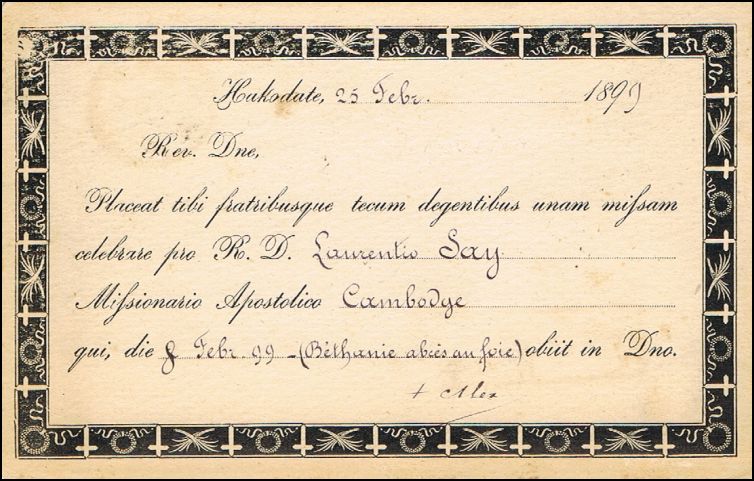 Hakodate, 25 Febr. 1899
Rev. Dne,
Placeat tibi fratribusque tecum degentibus unam miſsam
celebrare pro R. D. Laurentio Say
Miſsionario Apostolico Cambodge
qui, die 8 Febr. 99 - (Béthanie abcès au foie) obiit in Dno.
+ Alex